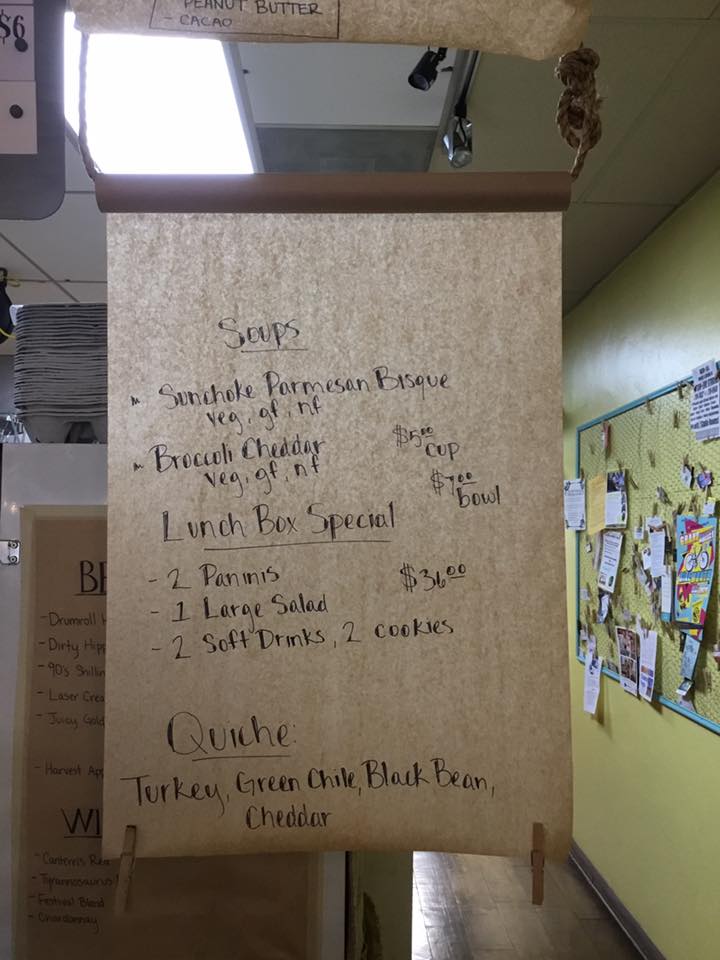 PEANUT BUTTER
- CACAO
$6
Soups
Sunchoke Parmesan Bisque
veg, gf, nf
Broccoli Cheddar
veg, gf, nf
$5.00
cup
$7.00
bowl
Lunch Box Special
- 2 Paninis
$36.00
- 1 Large Salad
- 2 Soft Drinks, 2 cookies
Quiche:
Turkey, Green Chile, Black Bean,
Cheddar
BE
- Drumroll
- Dirty Hipp
- 90's Shillin
- Laser Crea
- Juicy Gold
- Harvest App
WI
- Canterris Red
- Tyrannosaurus
- Festival Blend
- Chardonnay